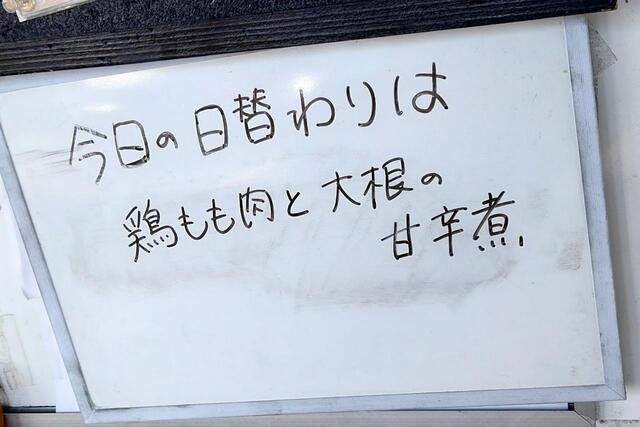 今日の日替わりは
鶏もも肉と大根の
甘辛煮